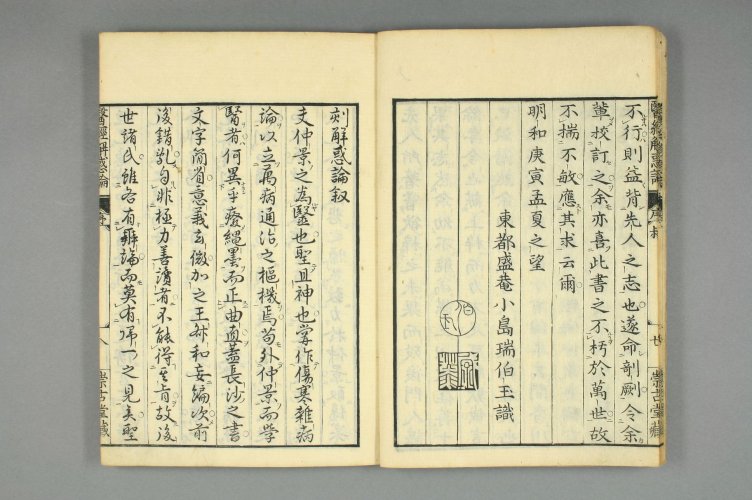 不行則益背先人之志也遂命剞劂令余
輩挍訂之余亦喜此書之不朽於萬世故
不揣不敏應其求云爾
明和庚寅孟夏之望
東都盛菴小島瑞伯玉識
刻解惑論叙
夫仲景之為醫也聖且神也嘗作傷寒雜病
論以立萬病通治之樞機焉苟外仲景而學
醫者何異乎癈繩墨而正曲直蓋長沙之書
文字簡省意義玄微加之王叔和妄編次前
後錯亂自非極力善讀者不能得其旨故後
世諸氏雖各有辨論而莫有歸一之見矣聖
醫經解惑論
崇古堂藏
醫經解惑論
崇古堂藏